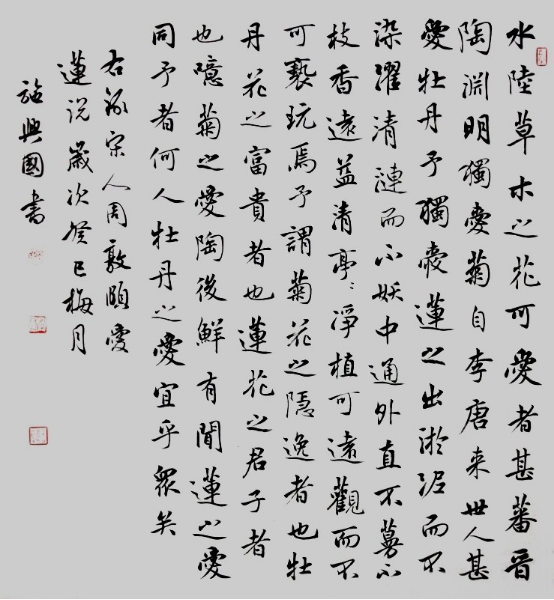 水陸草木之花可愛者甚蕃晋
陶淵明獨愛菊自李唐来世人甚
愛牡丹予獨愛蓮之出淤泥而不
染濯清漣而不妖中通外直不蔓不
枝香遠益清亭〻淨植可遠觀而不
可褻玩焉予謂菊花之隱逸者也牡
丹花之富貴者也蓮花之君子者
也噫菊之愛陶後鮮有聞蓮之愛
同予者何人牡丹之愛宜乎眾矣
右錄宋人周敦頤愛
蓮説歲次癸巳梅月
興國書